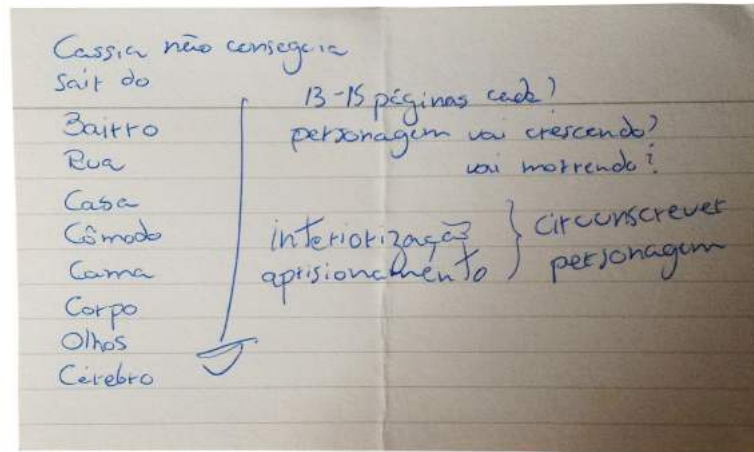 Cassia não conseguia
sair do
Bairro
Rua
Casa
Cômodo
Cama
Corpo
Olhos
Cérebro
13-15 páginas cada?
personagem vai crescendo?
vai morrendo?
interiorização
aprisionamento
} circunscrever
personagem